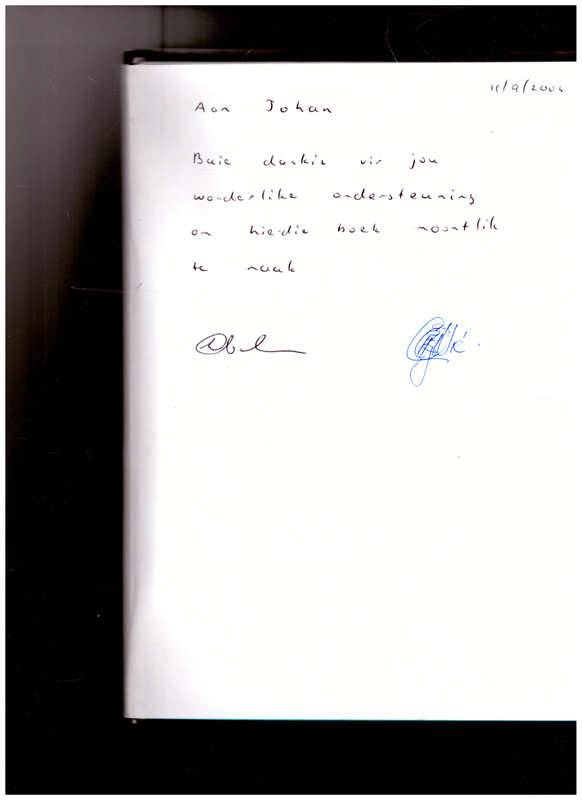 11/9/2006
Aan Johan
Baie dankie vir jou
wonderlike ondersteuning
om hierdie boek moontlik
te maak